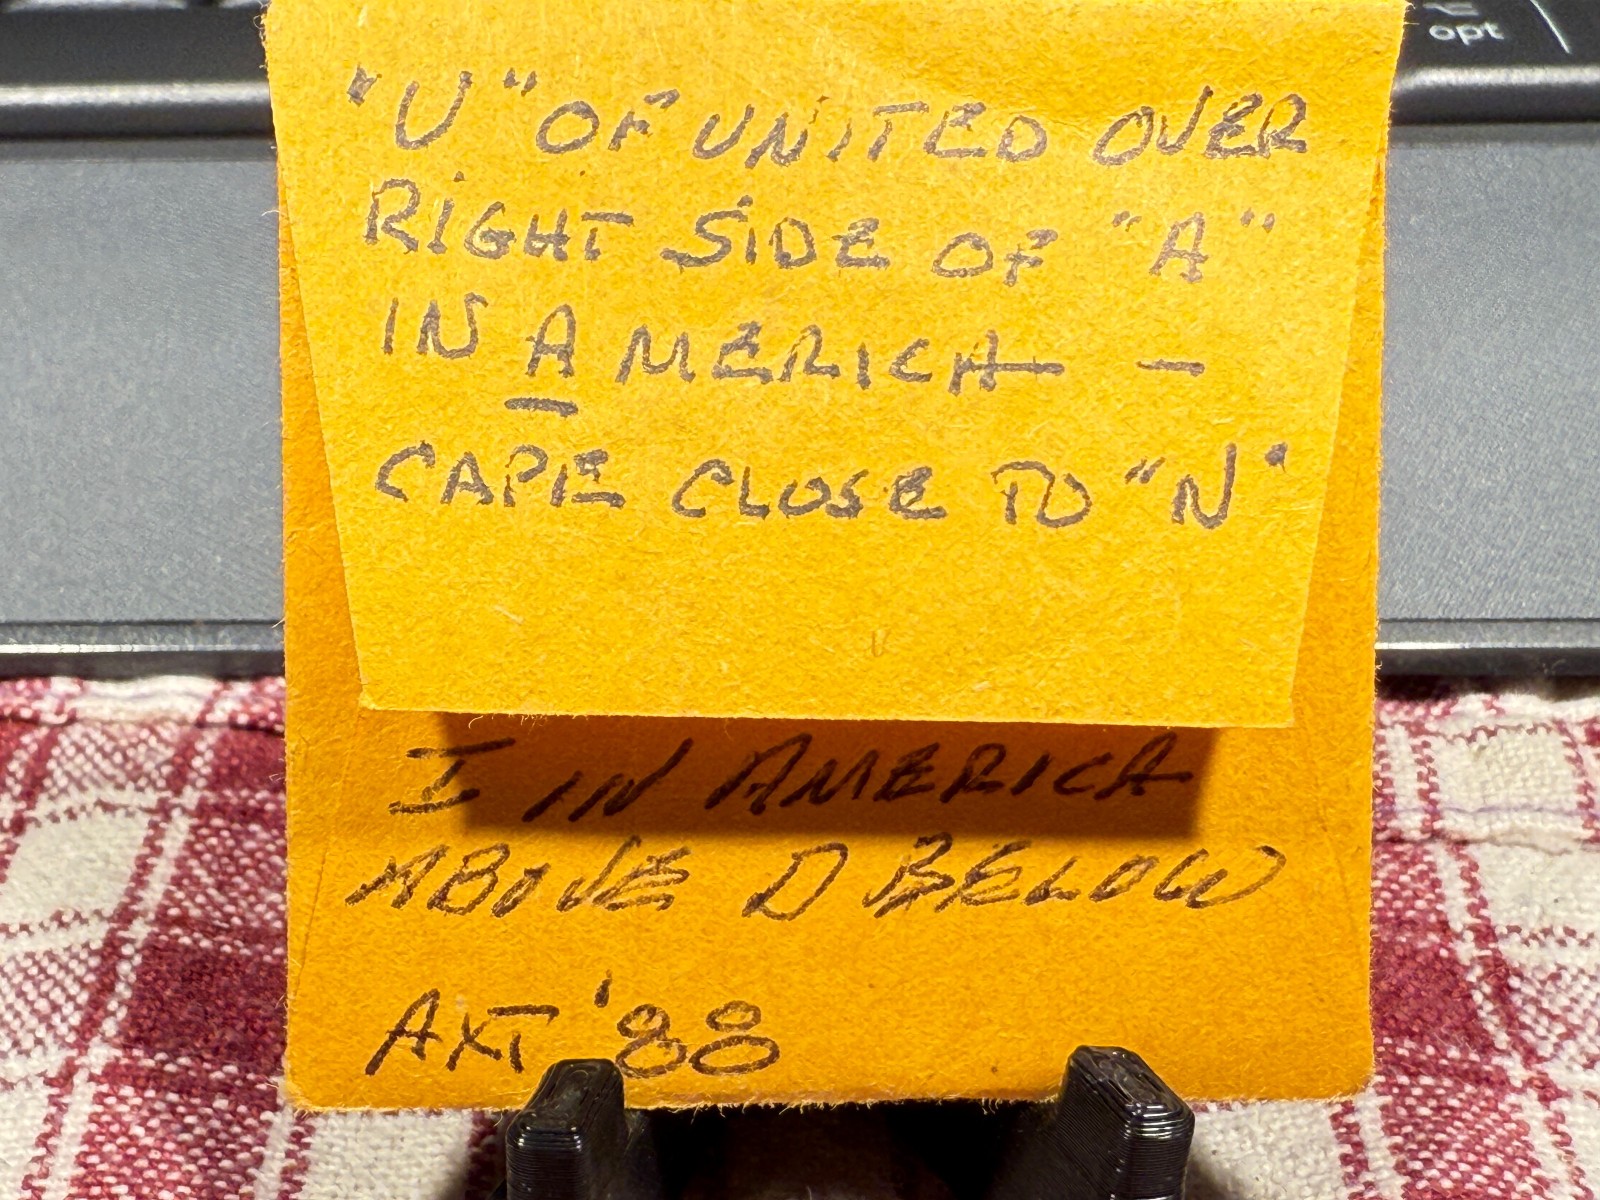 opt
"U" OF UNITED OVER
RIGHT SIDE OF "A"
IN AMERICA -
CAPE CLOSE TO "N"
I IN AMERICA
ABOVE D BELOW
AXT '88